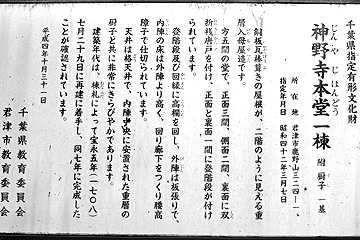 千葉県指定有形文化財
じんやじほんどう
神野寺本堂一棟 附 厨子 一基
所在地 君津市鹿野山三二四―一
指定年月日 昭和四十二年三月七日
銅板瓦棒葺きの屋根が、二階のように見える重
層入母屋造です。
方五間の堂で、正面三間、側面二間、裏面に双
折桟唐戸が付け、正面と裏面一間に登階段が付け
られています。
登階段及び回縁に高欄を回し、外陣は板張りで、
内陣の床は外陣より高く、回り廊下をつくり腰高
障子で仕切られています。
天井は格天井で、内陣中央に安置された重層の
厨子と共に非常にきらびやかであります。
建築年代は、棟札によって宝永五年(一七〇八)
七月二十九日に再建に着手し、同七年に完成した
ことが確認されています。
平成四年十月三十一日
千葉県教育委員会
君津市教育委員会